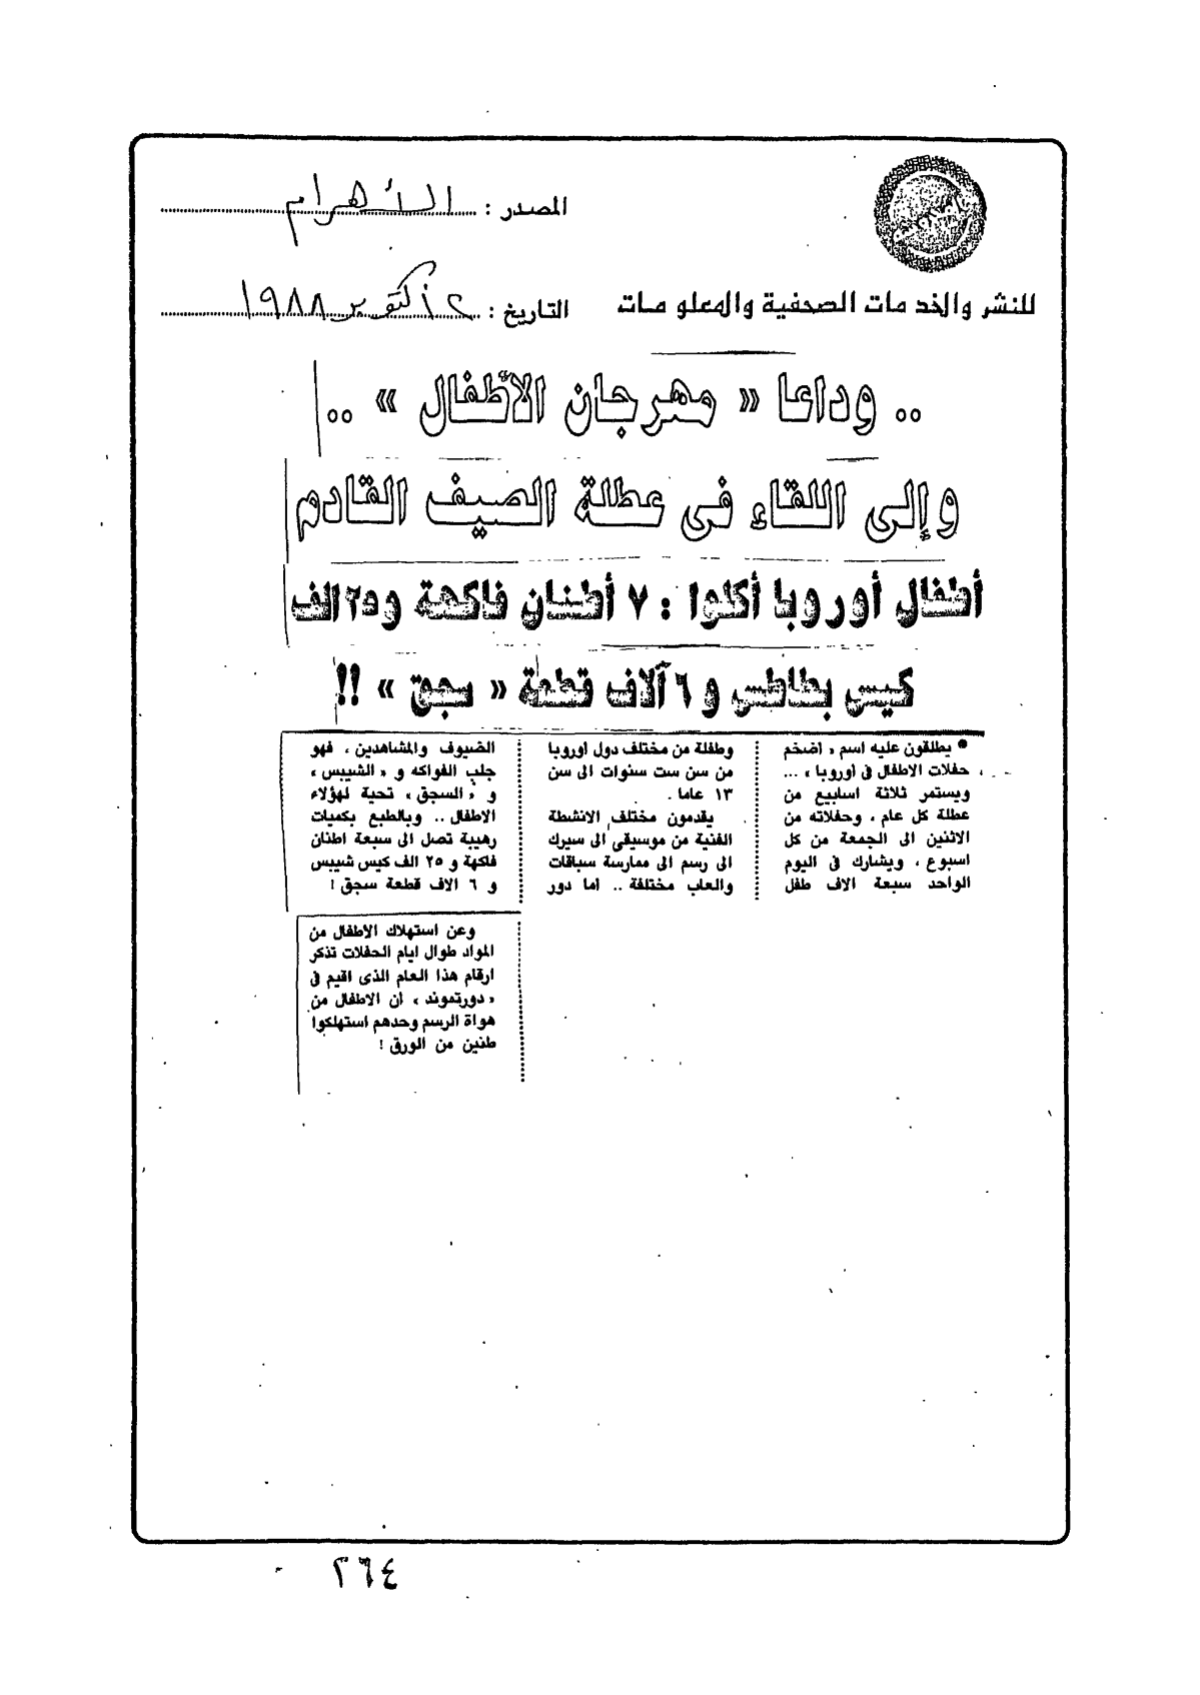 المصدر : الأهرام
للنشر والخدمات الصحفية والمعلومات
التاريخ : ٢ أكتوبر ١٩٨٨
.. وداعا « مهرجان الأطفال » ..
وإلى اللقاء فى عطلة الصيف القادم
أطفال أوروبا أكلوا : ٧ أطنان فاكهة و٢٥ الف
كيس بطاطس و ٦ آلاف قطعة « سجق » !!
● يطلقون عليه اسم « اضخم
حفلات الاطفال فى أوروبا » ...
ويستمر ثلاثة اسابيع من
عطلة كل عام ، وحفلاته من
الاثنين الى الجمعة من كل
اسبوع ، ويشارك فى اليوم
الواحد سبعة الاف طفل
وطفلة من مختلف دول اوروبا
من سن ست سنوات الى سن
١٣ عاما .
يقدمون مختلف الانشطة
الفنية من موسيقى الى سيرك
الى رسم الى ممارسة سباقات
والعاب مختلفة .. اما دور
الضيوف والمشاهدين ، فهو
جلب الفواكه و « الشيبس »
و « السجق » تحية لهؤلاء
الاطفال .. وبالطبع بكميات
رهيبة تصل الى سبعة اطنان
فاكهة و ٢٥ الف كيس شيبس
و ٦ الاف قطعة سجق !
وعن استهلاك الأطفال من
المواد طوال ايام الحفلات تذكر
ارقام هذا العام الذى اقيم فى
« دورتموند » ان الاطفال من
هواة الرسم وحدهم استهلكوا
طنين من الورق !
٢٦٤